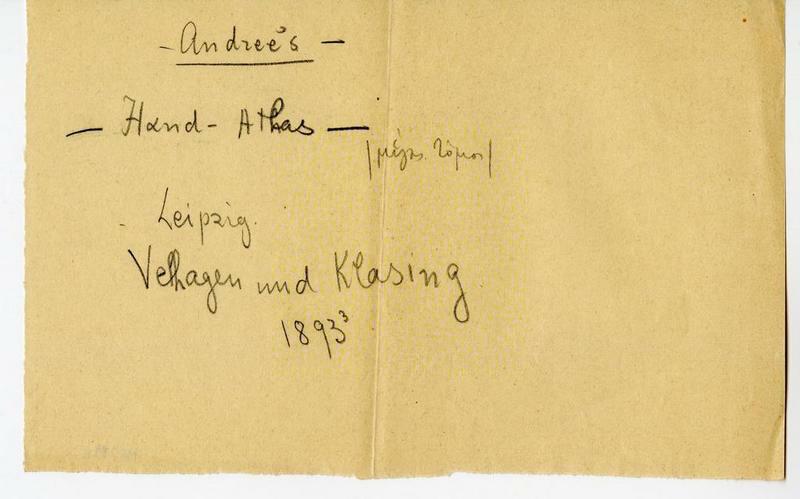 - Andree's -
- Hand - Athas -
|μέγας τόμος|
- Leipzig.
Velhagen und Klasing
1893³